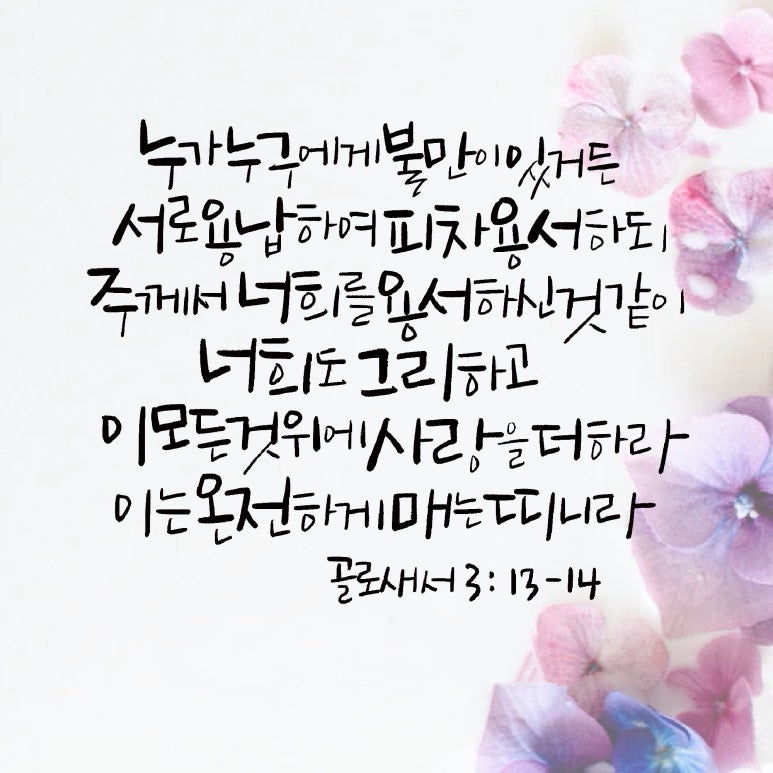 누가 누구에게 불만이 있거든
서로 용납하여 피차 용서하되
주께서 너희를 용서하신 것 같이
너희도 그리하고
이 모든 것 위에 사랑을 더하라
이는 온전하게 매는 띠니라
골로새서 3:13-14